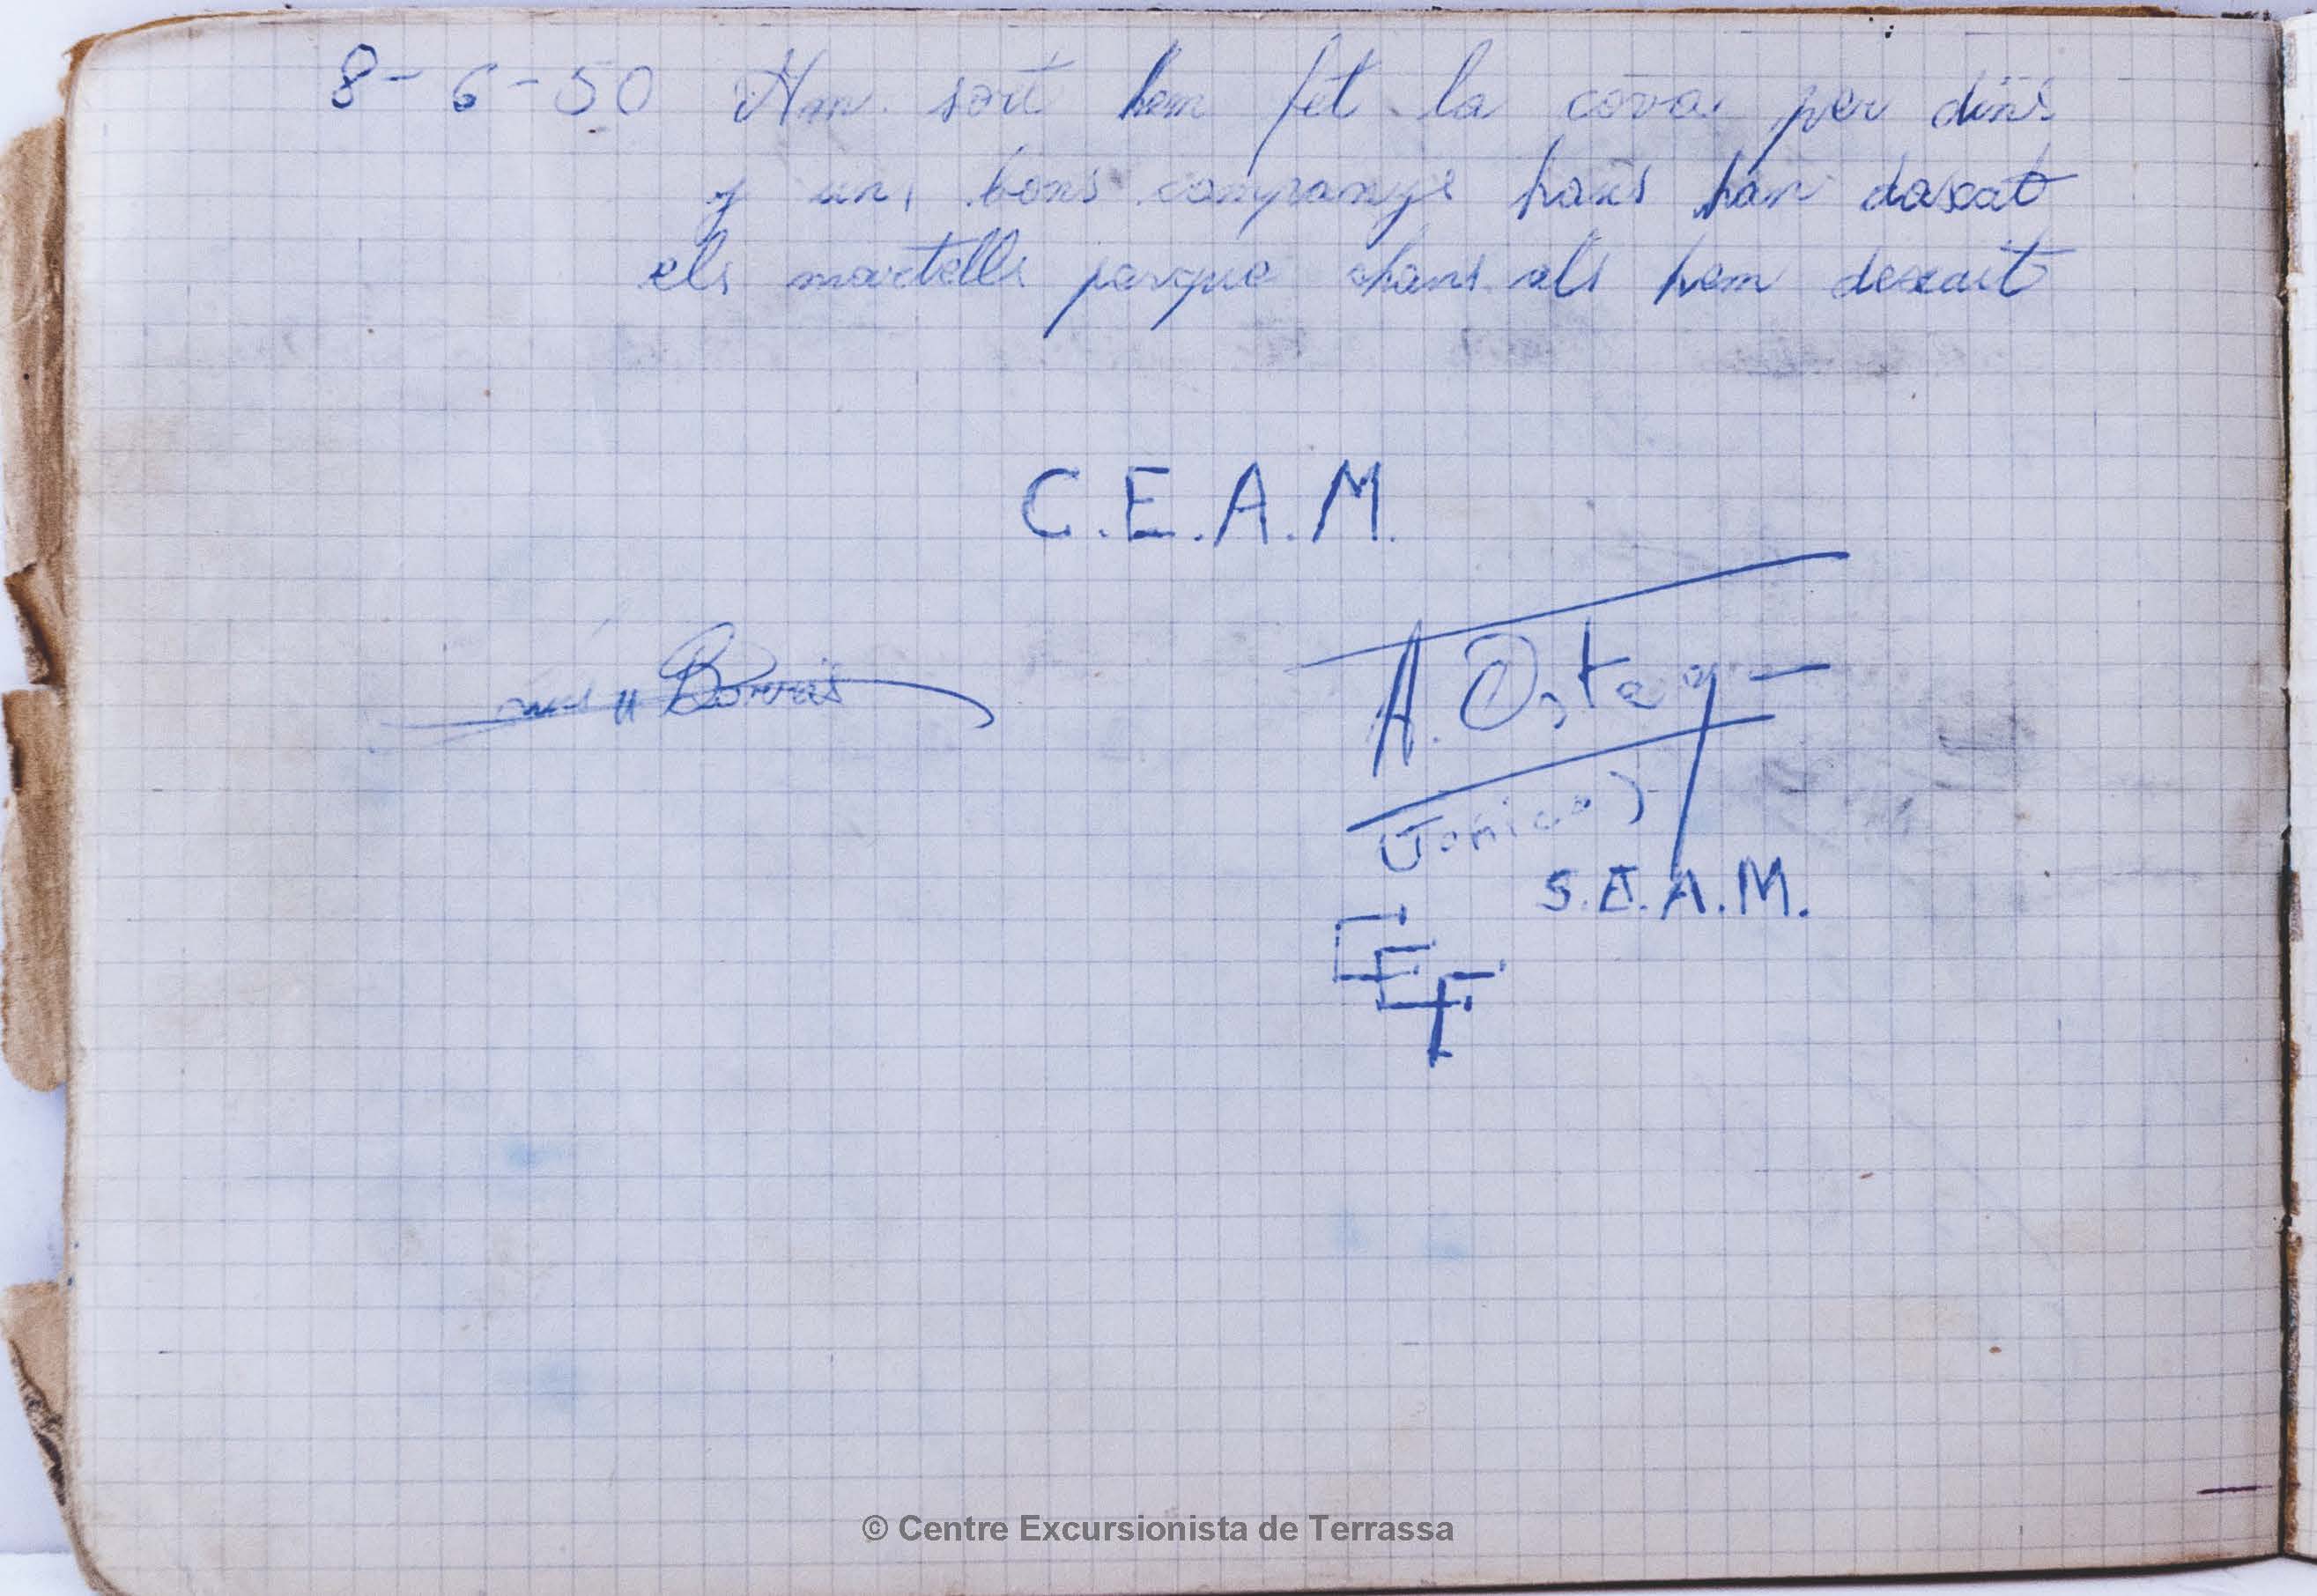 8-6-50 Am sort hem fet la cova per dins
y uns bons companys hans han daxat
els martells perque ehans els hem dexait
C.E.A.M.
Borras
A. Ostay
(Tonico)
S.E.A.M.
CET
© Centre Excursionista de Terrassa